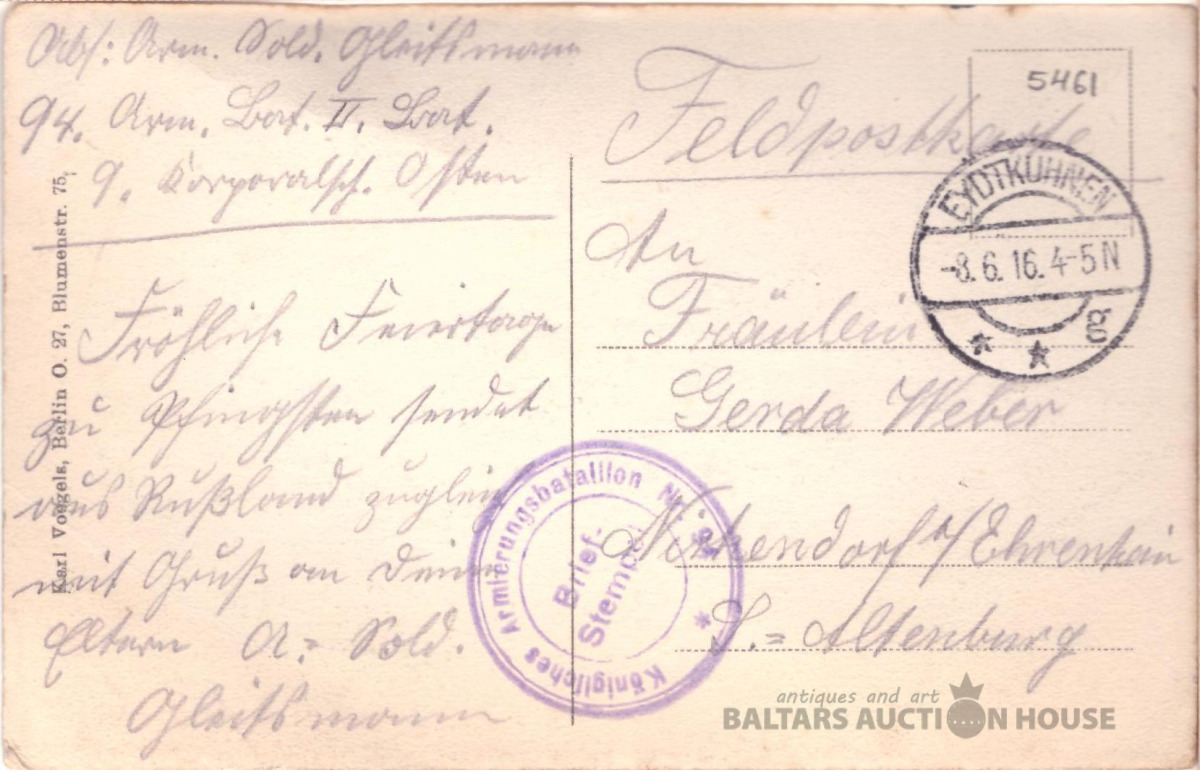 Abs: Arm. Sold. Gleitsmann
94. Arm. Bat. II. Bat.
9. Korporalsch. Osten
Fröhliche Feiertage
zu Pfingsten sendet
aus Rußland zugleich
mit Gruß an Deine
Eltern A.= Sold.
Gleitsmann
Karl Voegels, Berlin O. 27, Blumenstr. 75.
Feldpostkarte
5461
EYDTKUHNEN
-8.6.16.4-5N
* * g
An
Fräulein
Gerda Weber
a/Ehrenhain
S.= Altenburg
Königliches Armierungsbataillon Nr. 94 *
Brief-
Stempel
antiques and art
BALTARS AUCTION HOUSE